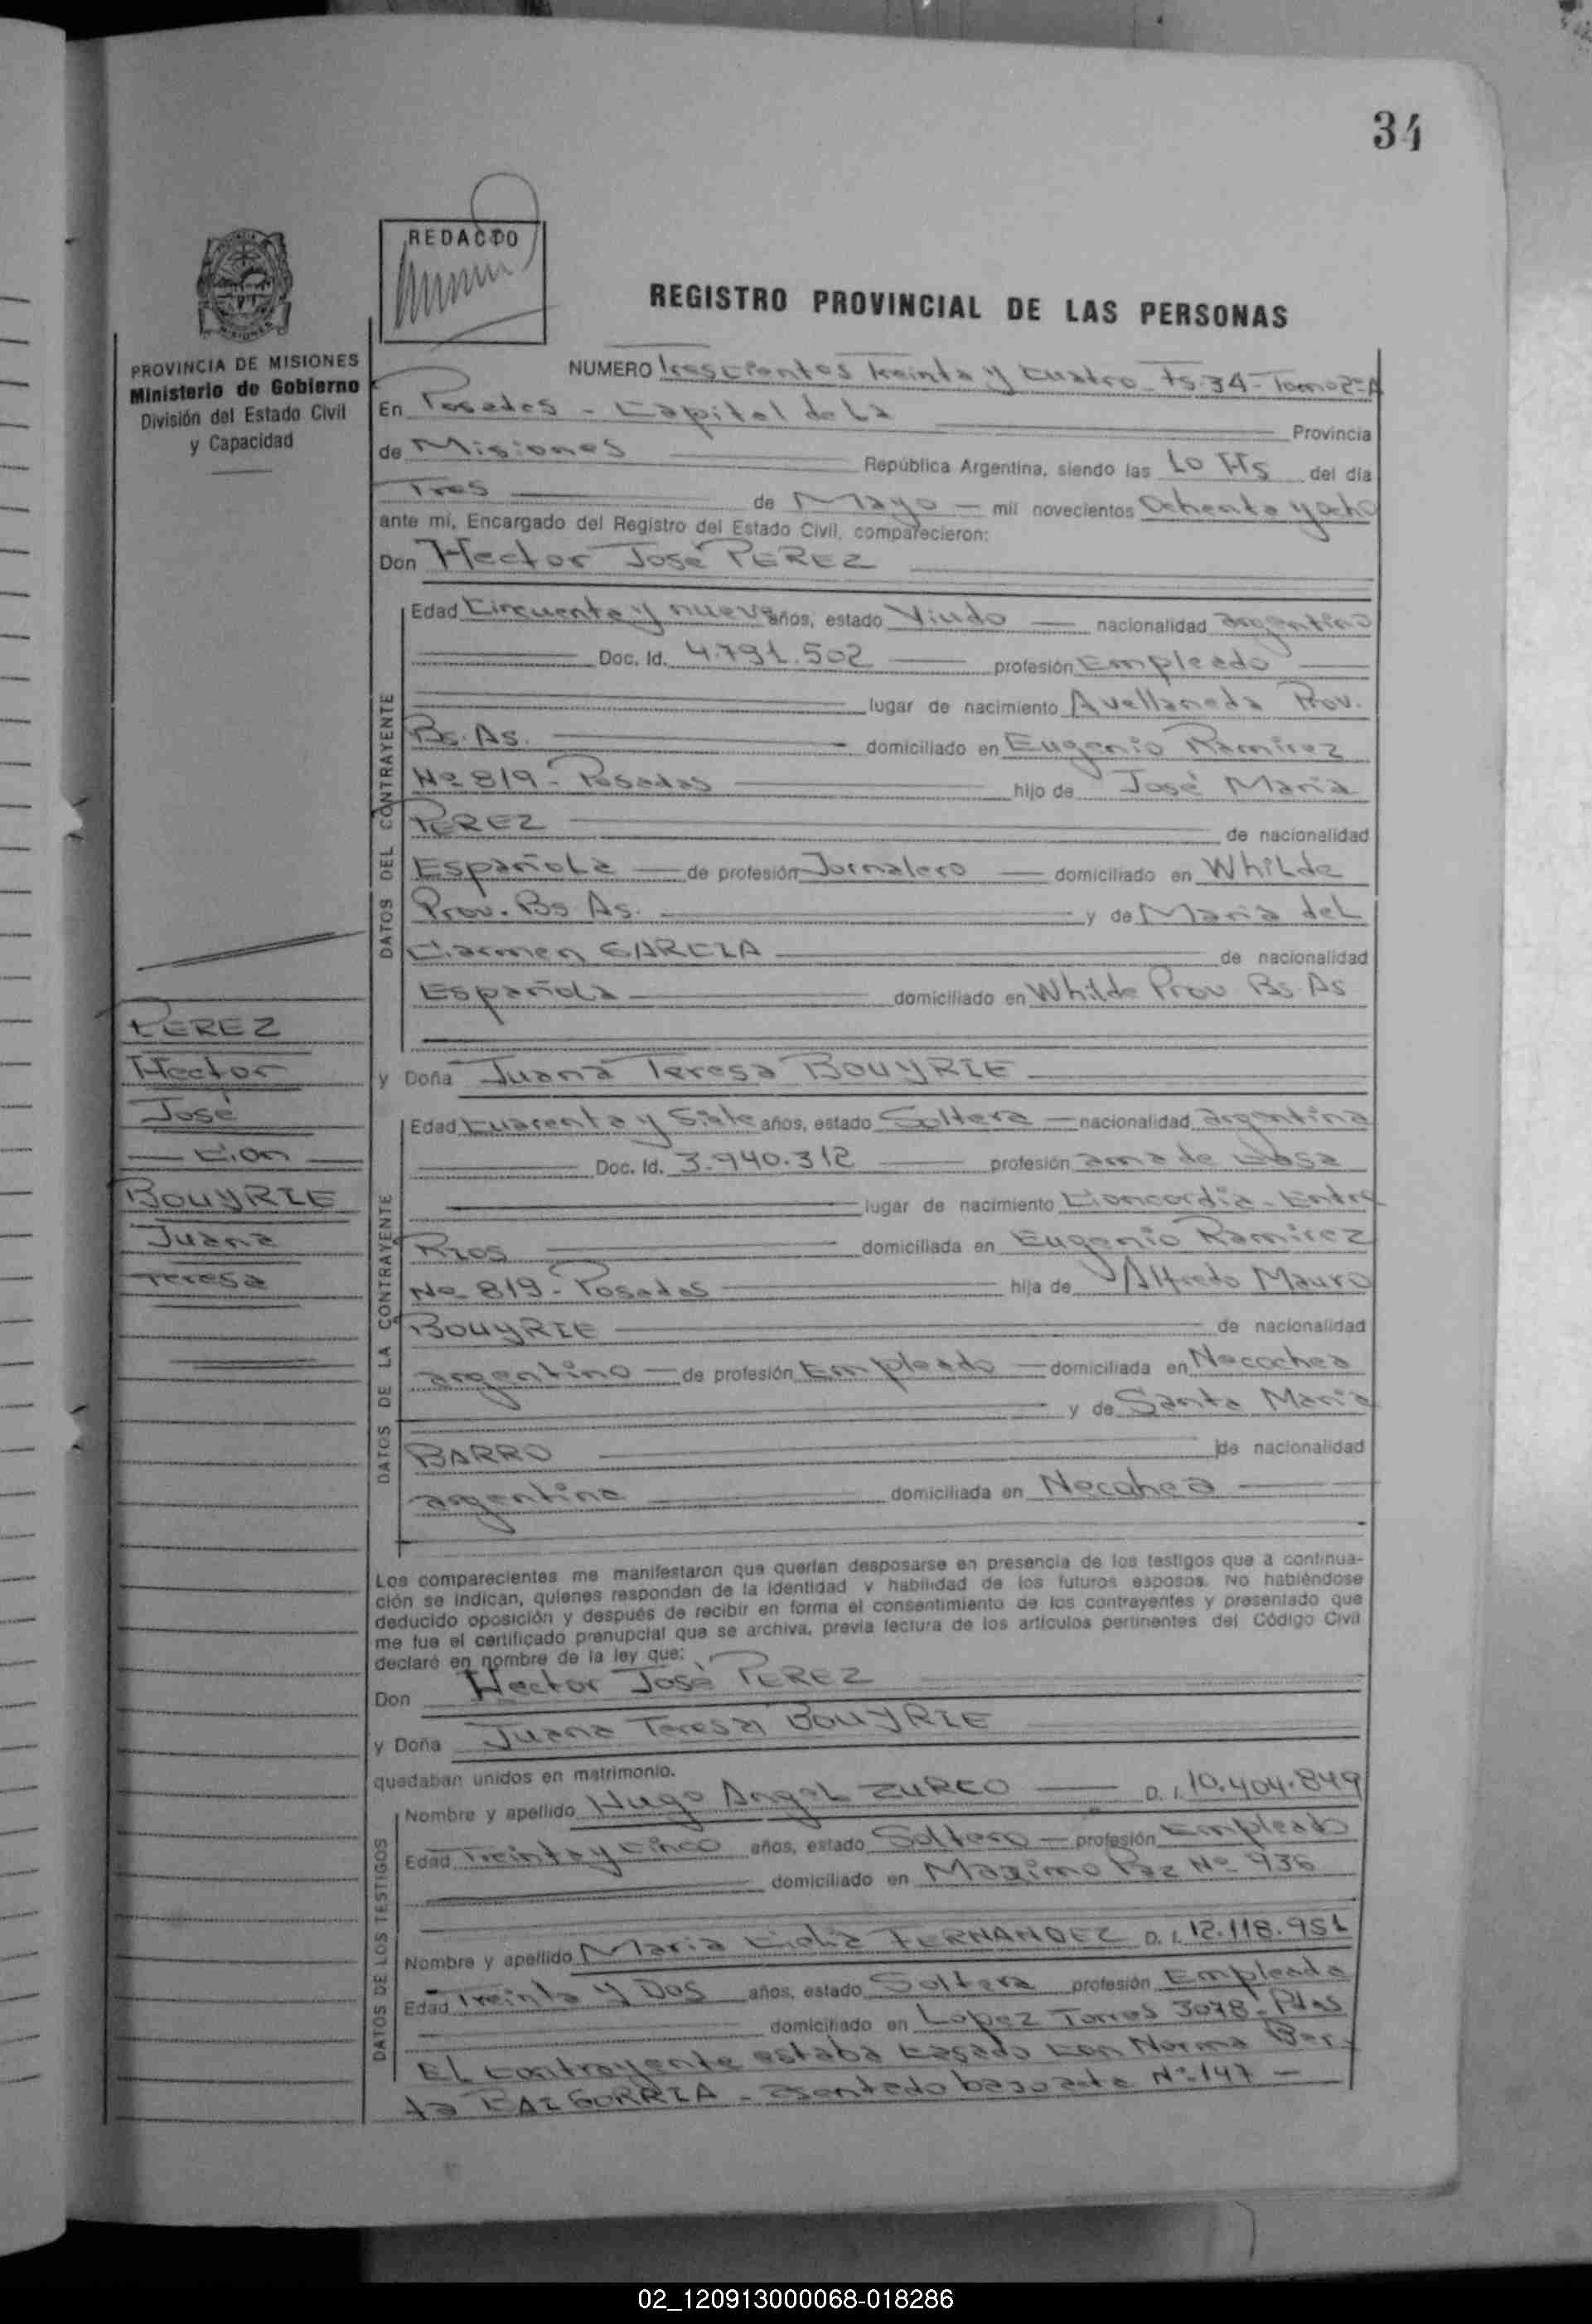 34
REDACTO
REGISTRO PROVINCIAL DE LAS PERSONAS
PROVINCIA DE MISIONES
Ministerio de Gobierno
División del Estado Civil
y Capacidad
NUMERO Trescientos treinta y cuatro Fs. 34 - Tomo 2º A
En Posadas - Capital de La Provincia
de Misiones República Argentina, siendo las 10 Hs del día
Tres de Mayo mil novecientos Ochenta y ocho
ante mi, Encargado del Registro del Estado Civil, comparecieron:
Don Hector José PEREZ
DATOS DEL CONTRAYENTE
Edad Cincuenta y nueve años, estado Viudo nacionalidad argentino
Doc. Id. 4.791.502 profesión Empleado
lugar de nacimiento Avellaneda Prov.
Bs. As. domiciliado en Eugenio Ramirez
Nº 819 - Posadas hijo de José Maria
PEREZ de nacionalidad
Española de profesión Jornalero domiciliado en Whilde
Prov. Bs As. y de Maria del
Carmen GARCIA de nacionalidad
Española domiciliado en Whilde Prov Bs. As
PEREZ
Hector
José
- Con -
BOUYRIE
Juana
Teresa
y Doña Juana Teresa BOUYRIE
DATOS DE LA CONTRAYENTE
Edad Cuarenta y Siete años, estado Soltera nacionalidad argentina
Doc. Id. 3.940.312 profesión ama de Casa
lugar de nacimiento Concordia - Entre
Rios domiciliada en Eugenio Ramirez
Nº 819 - Posadas hija de Alfredo Mauro
BOUYRIE de nacionalidad
argentino de profesión Empleado domiciliada en Necochea
y de Santa Maria
BARRO de nacionalidad
argentina domiciliada en Necohea
Los comparecientes me manifestaron que querían desposarse en presencia de los testigos que a continua-
ción se indican, quienes responden de la identidad y habilidad de los futuros esposos. No habiéndose
deducido oposición y después de recibir en forma el consentimiento de los contrayentes y presentado que
me fue el certificado prenupcial que se archiva, previa lectura de los artículos pertinentes del Código Civil
declaré en nombre de la ley que:
Don Hector José PEREZ
y Doña Juana Teresa BOUYRIE
quedaban unidos en matrimonio.
DATOS DE LOS TESTIGOS
Nombre y apellido Hugo Angel ZURCO D. I. 10.404.849
Edad Treinta y Cinco años, estado Soltero profesión Empleado
domiciliado en Maximo Paz Nº 936
Nombre y apellido Maria FERNANDEZ D. I. 12.118.951
Edad Treinta y Dos años, estado Soltera profesión Empleada
domiciliado en Lopez Torres 3078 - Pdas
El contrayente estaba Casado Con Norma Ber-
ta BAIGORRIA - asentado bajo acta Nº 147 -
02_120913000068-018286